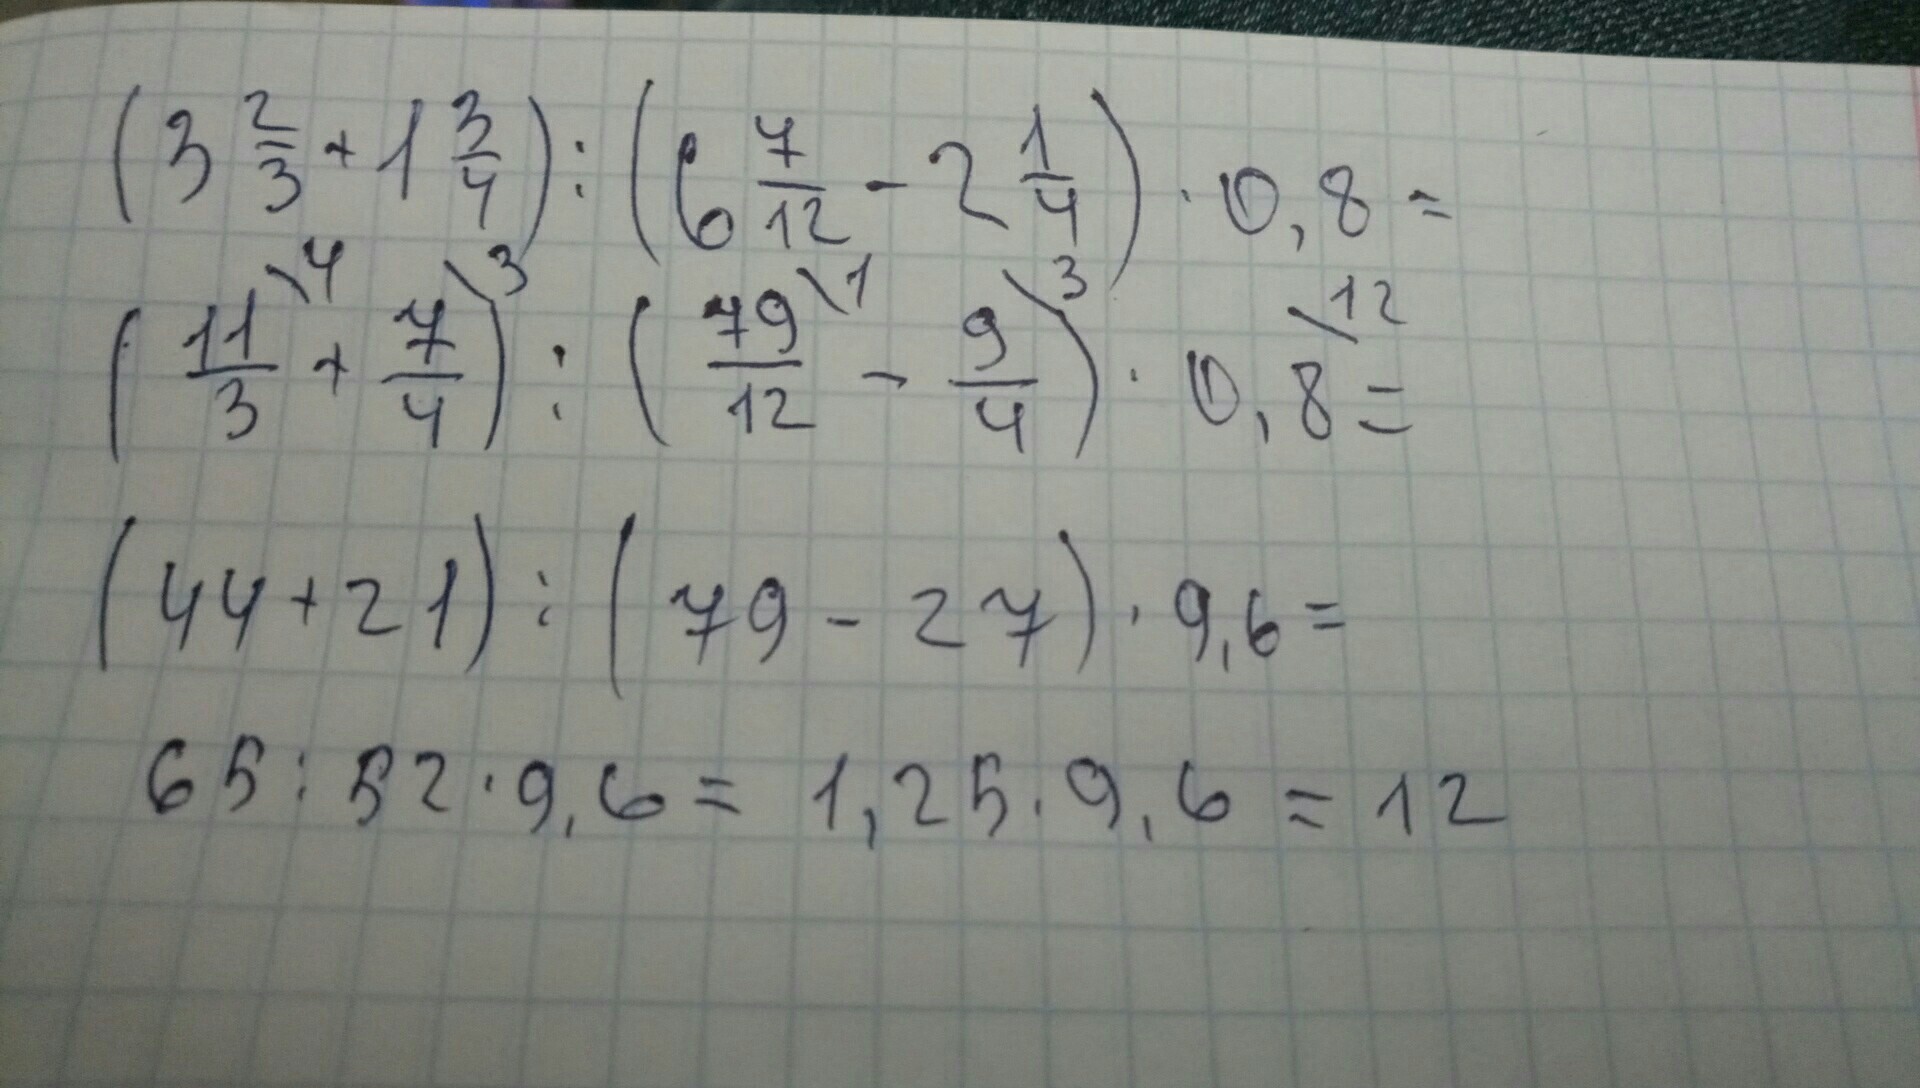 (3 2/3 + 1 3/4) : (6 7/12 - 2 1/4) · 0,8 =
(11/3 \4 + 7/4 \3) : (79/12 \1 - 9/4 \3) · 0,8 \12 =
(44 + 21) : (79 - 27) · 9,6 =
65 : 52 · 9,6 = 1,25 · 9,6 = 12